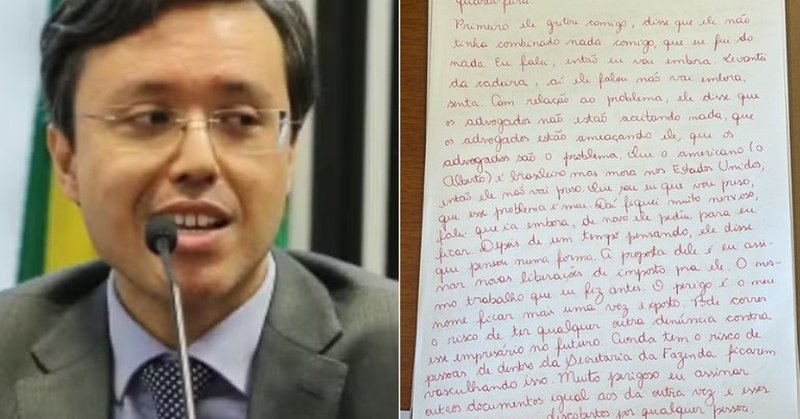 quarta-feira
Primeiro ele gritou comigo, disse que ele não
tinha combinado nada comigo, que eu fui do
nada. Eu falei, então eu vou embora. Levantei
da cadeira, aí ele falou não vai embora,
senta. Com relação ao problema, ele disse que
os advogados não estão aceitando nada, que
os advogados estão ameaçando ele, que os
advogados são o problema. Que o americano (o
Alberto) é brasileiro mas mora nos Estados Unidos,
então ele não vai preso. Que sou eu que vou preso,
que esse problema é meu. Daí fiquei muito nervoso,
falei que ia embora, de novo ele pediu para eu
ficar. Depois de um tempo pensando, ele disse
que pensou numa forma. A proposta dele é eu assi-
nar novas liberações de imposto pra ele. O mes-
mo trabalho que eu fiz antes. O perigo é o meu
nome ficar mais uma vez exposto. Pode correr
o risco de ter qualquer outra denúncia contra
esse empresário no futuro. Ainda tem o risco de
pessoas de dentro da Secretaria da Fazenda ficarem
vasculhando isso. Muito perigoso eu assinar
outros documentos igual aos da outra vez e esses
descobertos por qualquer pessoa,